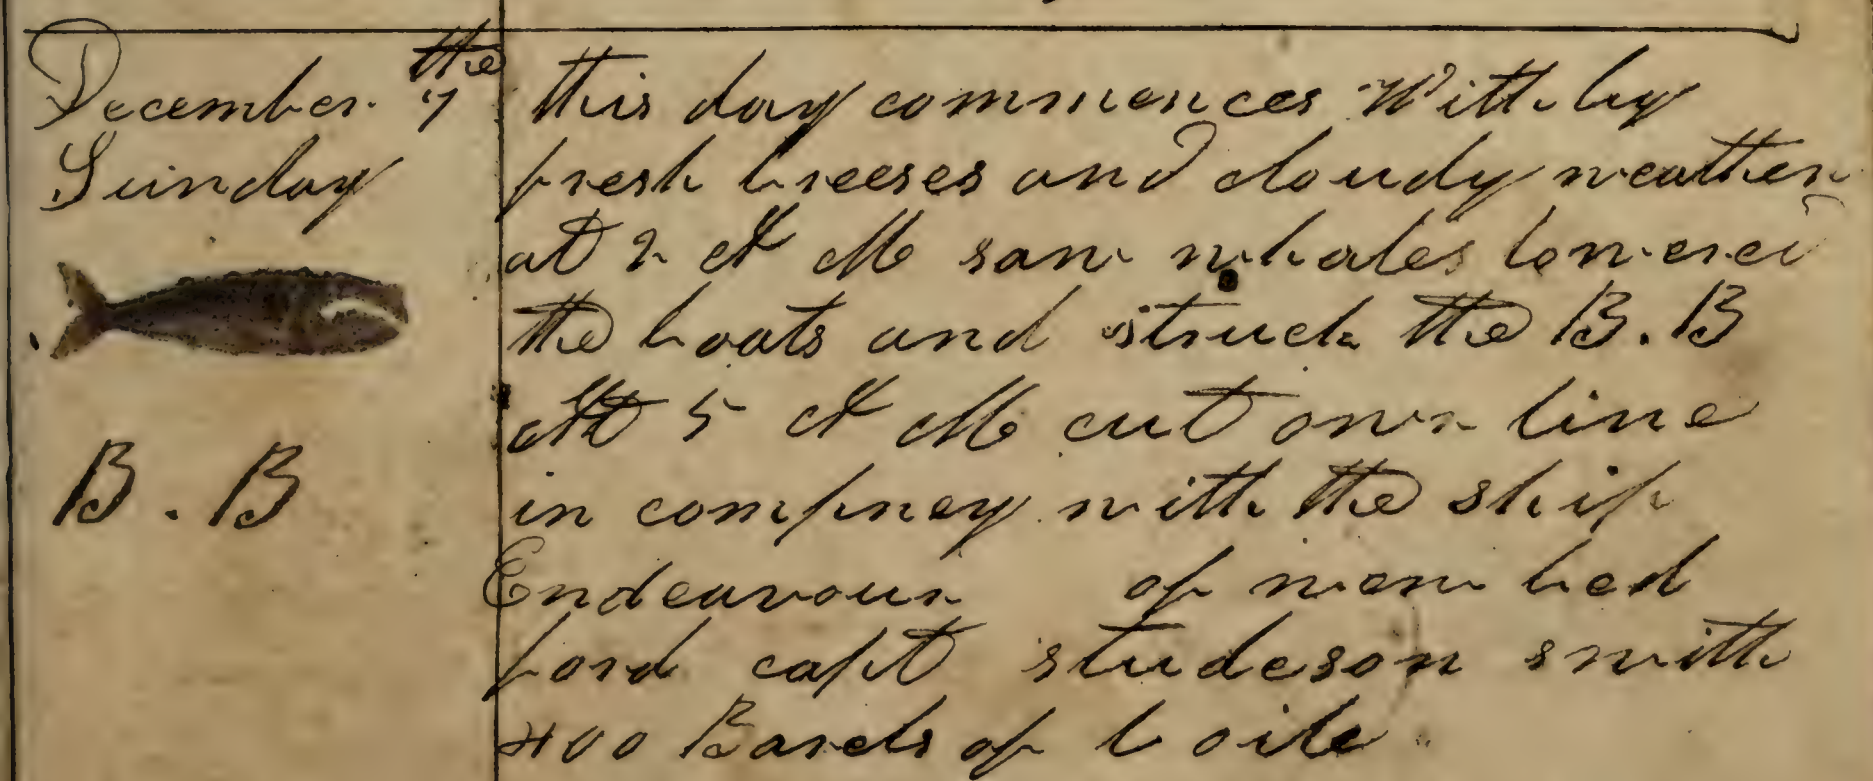 December the 7
Sunday
B . B
this day commences With by
fresh breeses and cloudy weather
at 2 A M saw whales lowered
the boats and struck the B . B
At 5 A M cut owr line
in compney with the ship
Endeavour of new bed
ford capt studeson smith
400 Barels of oile